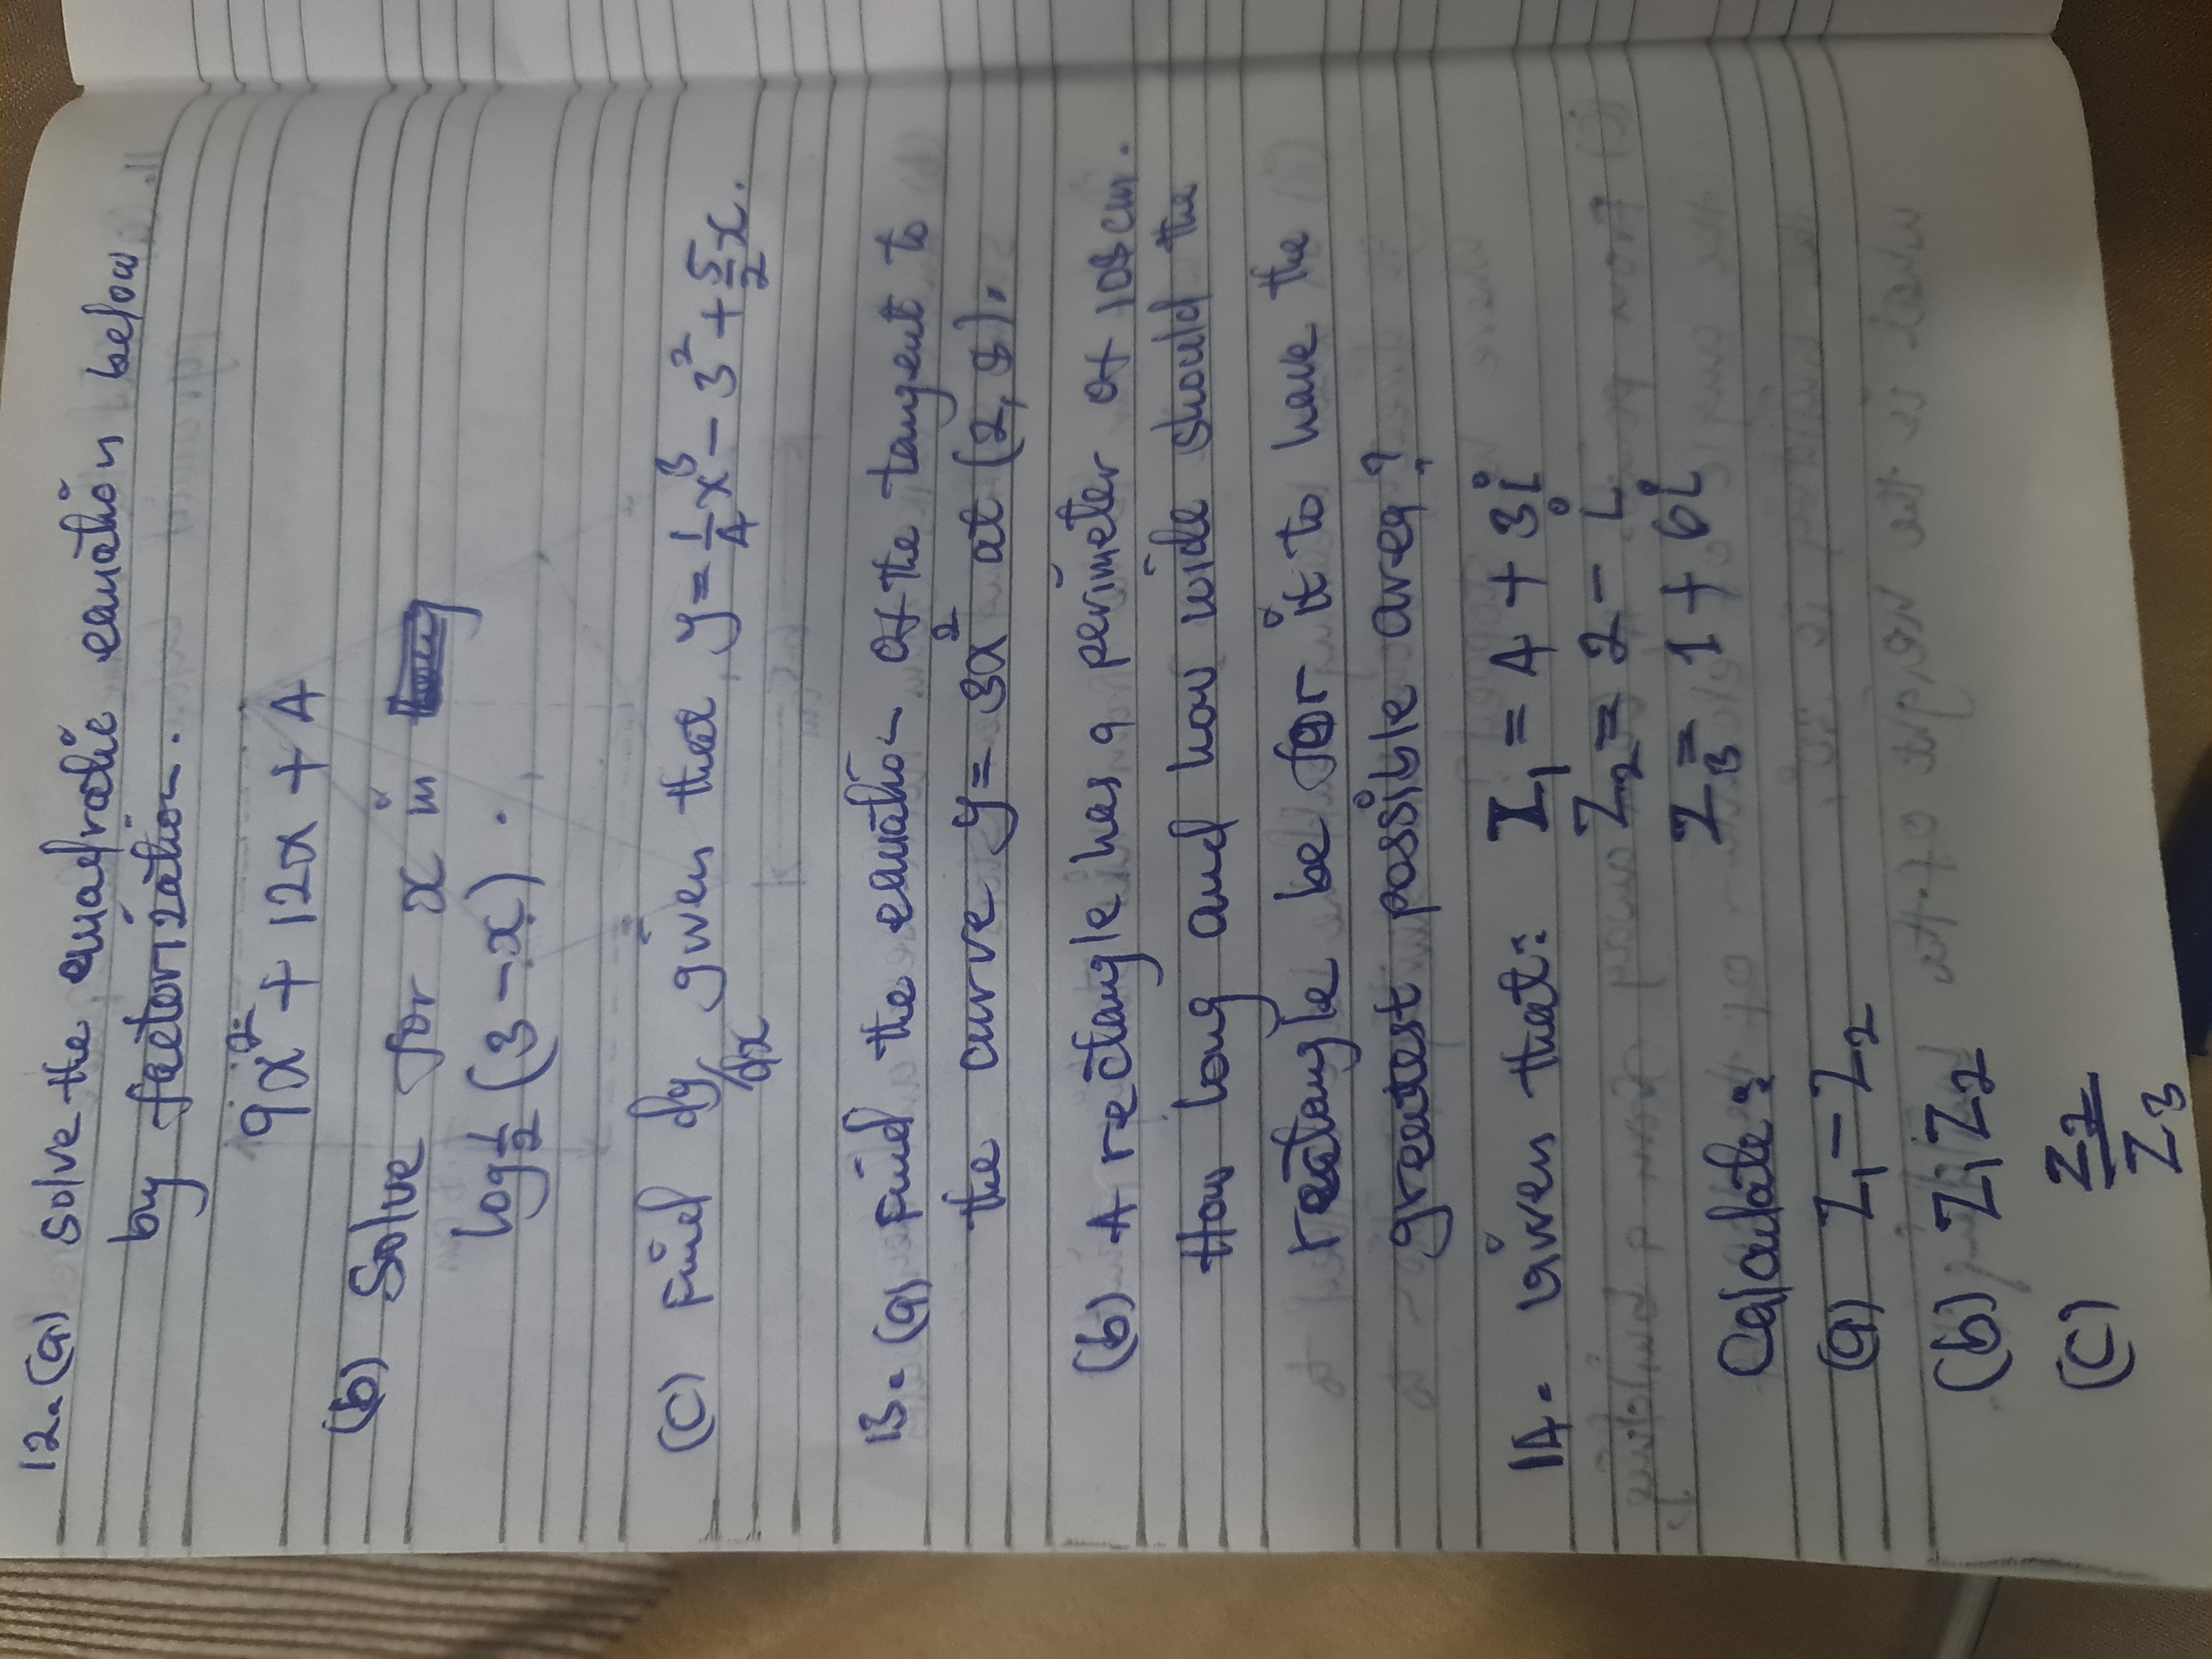 12. (a) Solve the quadratic equation below
by factorization.
9x² + 12x + 4
(b) Solve for x in
log½ (3 - x).
(c) Find dy/dx given that y = 1/4 x³ - 3² + 5/2 x.
13. (a) Find the equation of the tangent to
the curve y = 3x² at (2, 8).
(b) A rectangle has a perimeter of 108cm.
How long and how wide should the
rectangle be for it to have the
greatest possible area?
14. Given that: Z₁ = 4 + 3i
Z₂ = 2 - i
Z₃ = 1 + 6i
Calculate:
(a) Z₁ - Z₂
(b) Z₁ Z₂
(c) Z₂/Z₃